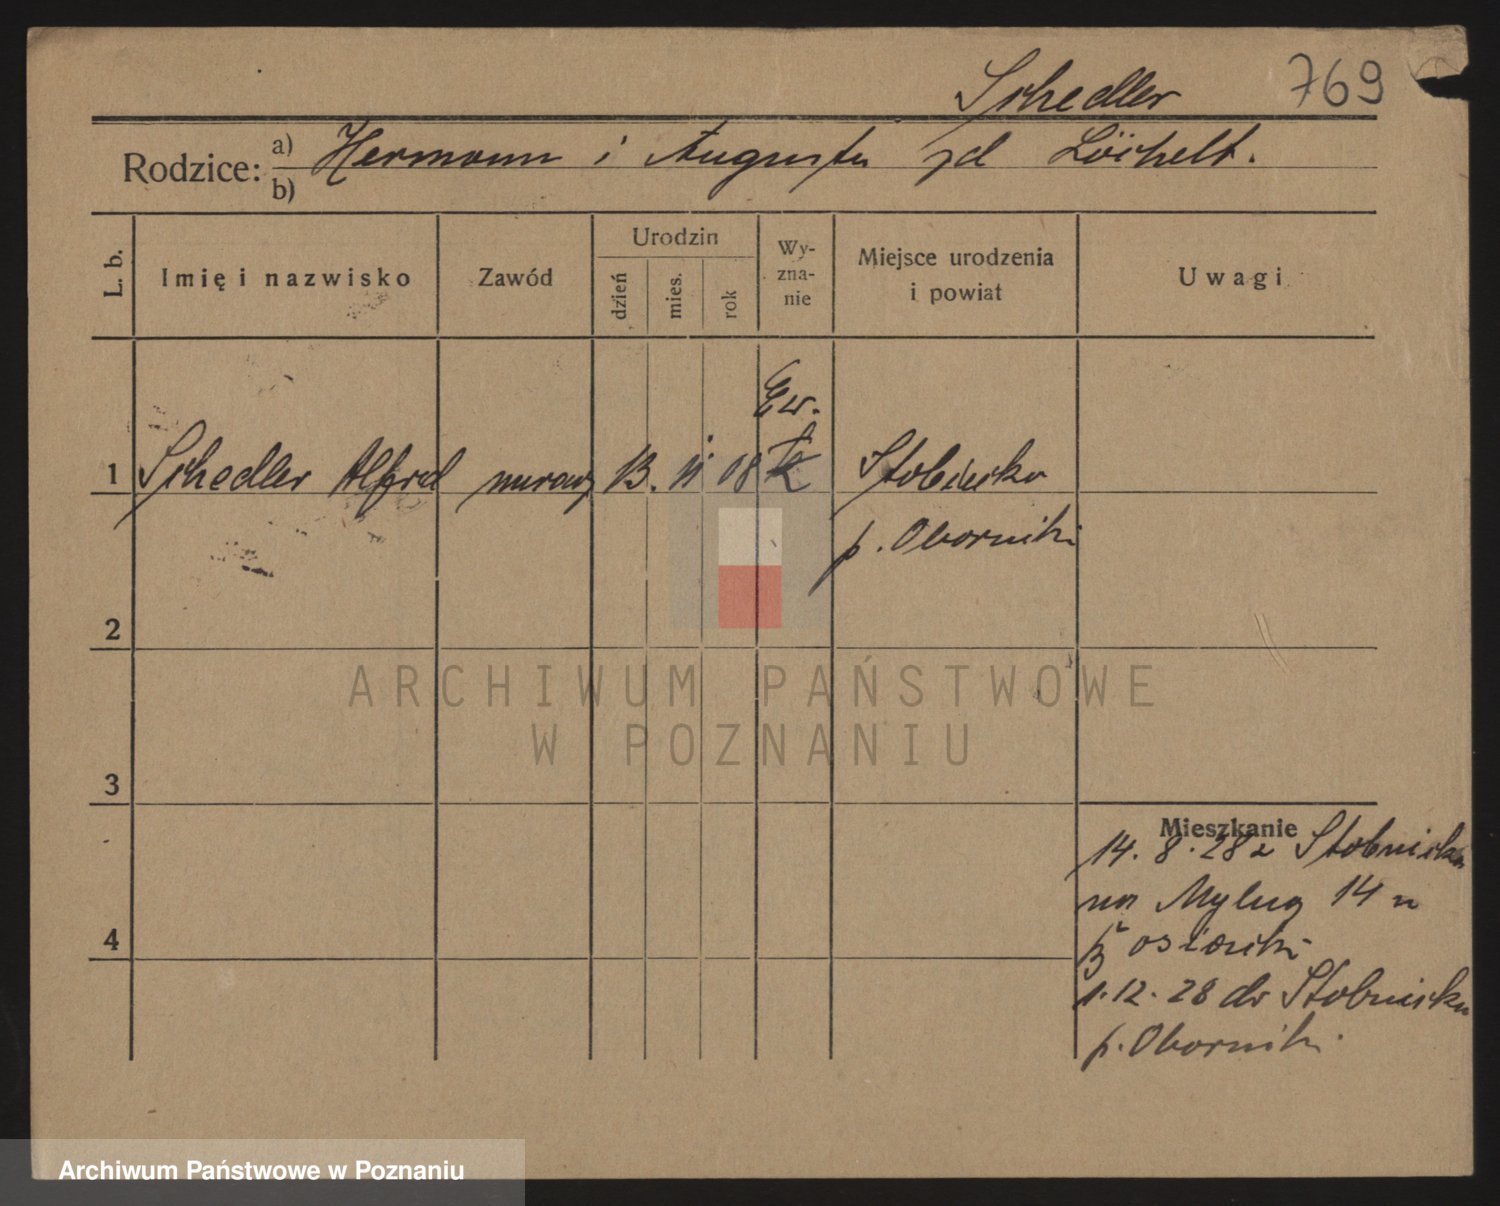 Schedler 769
Rodzice: a) Hermann i Augusta zd Löchelt.
b)
L. b.
Imię i nazwisko
Zawód
Urodzin
dzień
mies.
rok
Wy-
zna-
nie
Miejsce urodzenia
i powiat
Uwagi
Ew.
1 Schedler Alfred murarz 13. II 08 k Stobnicko
p. Oborniki
2
3
4
Mieszkanie
14. 8. 28 z Stobnicka
na Mylną 14 u
1.12.28 do Stobnicka
p. Oborniki
ARCHIWUM PAŃSTWOWE
W POZNANIU
Archiwum Państwowe w Poznaniu